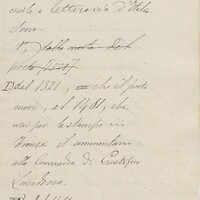 civile e letteraria d'Italia
sono.
1º, dalla morte del
poeta [1321]
I) dal 1321, che il poeta
morì, al 1481, che
uscì per le stampe in
Firenze il commentario
alla Commedia di Cristoforo
Landino.